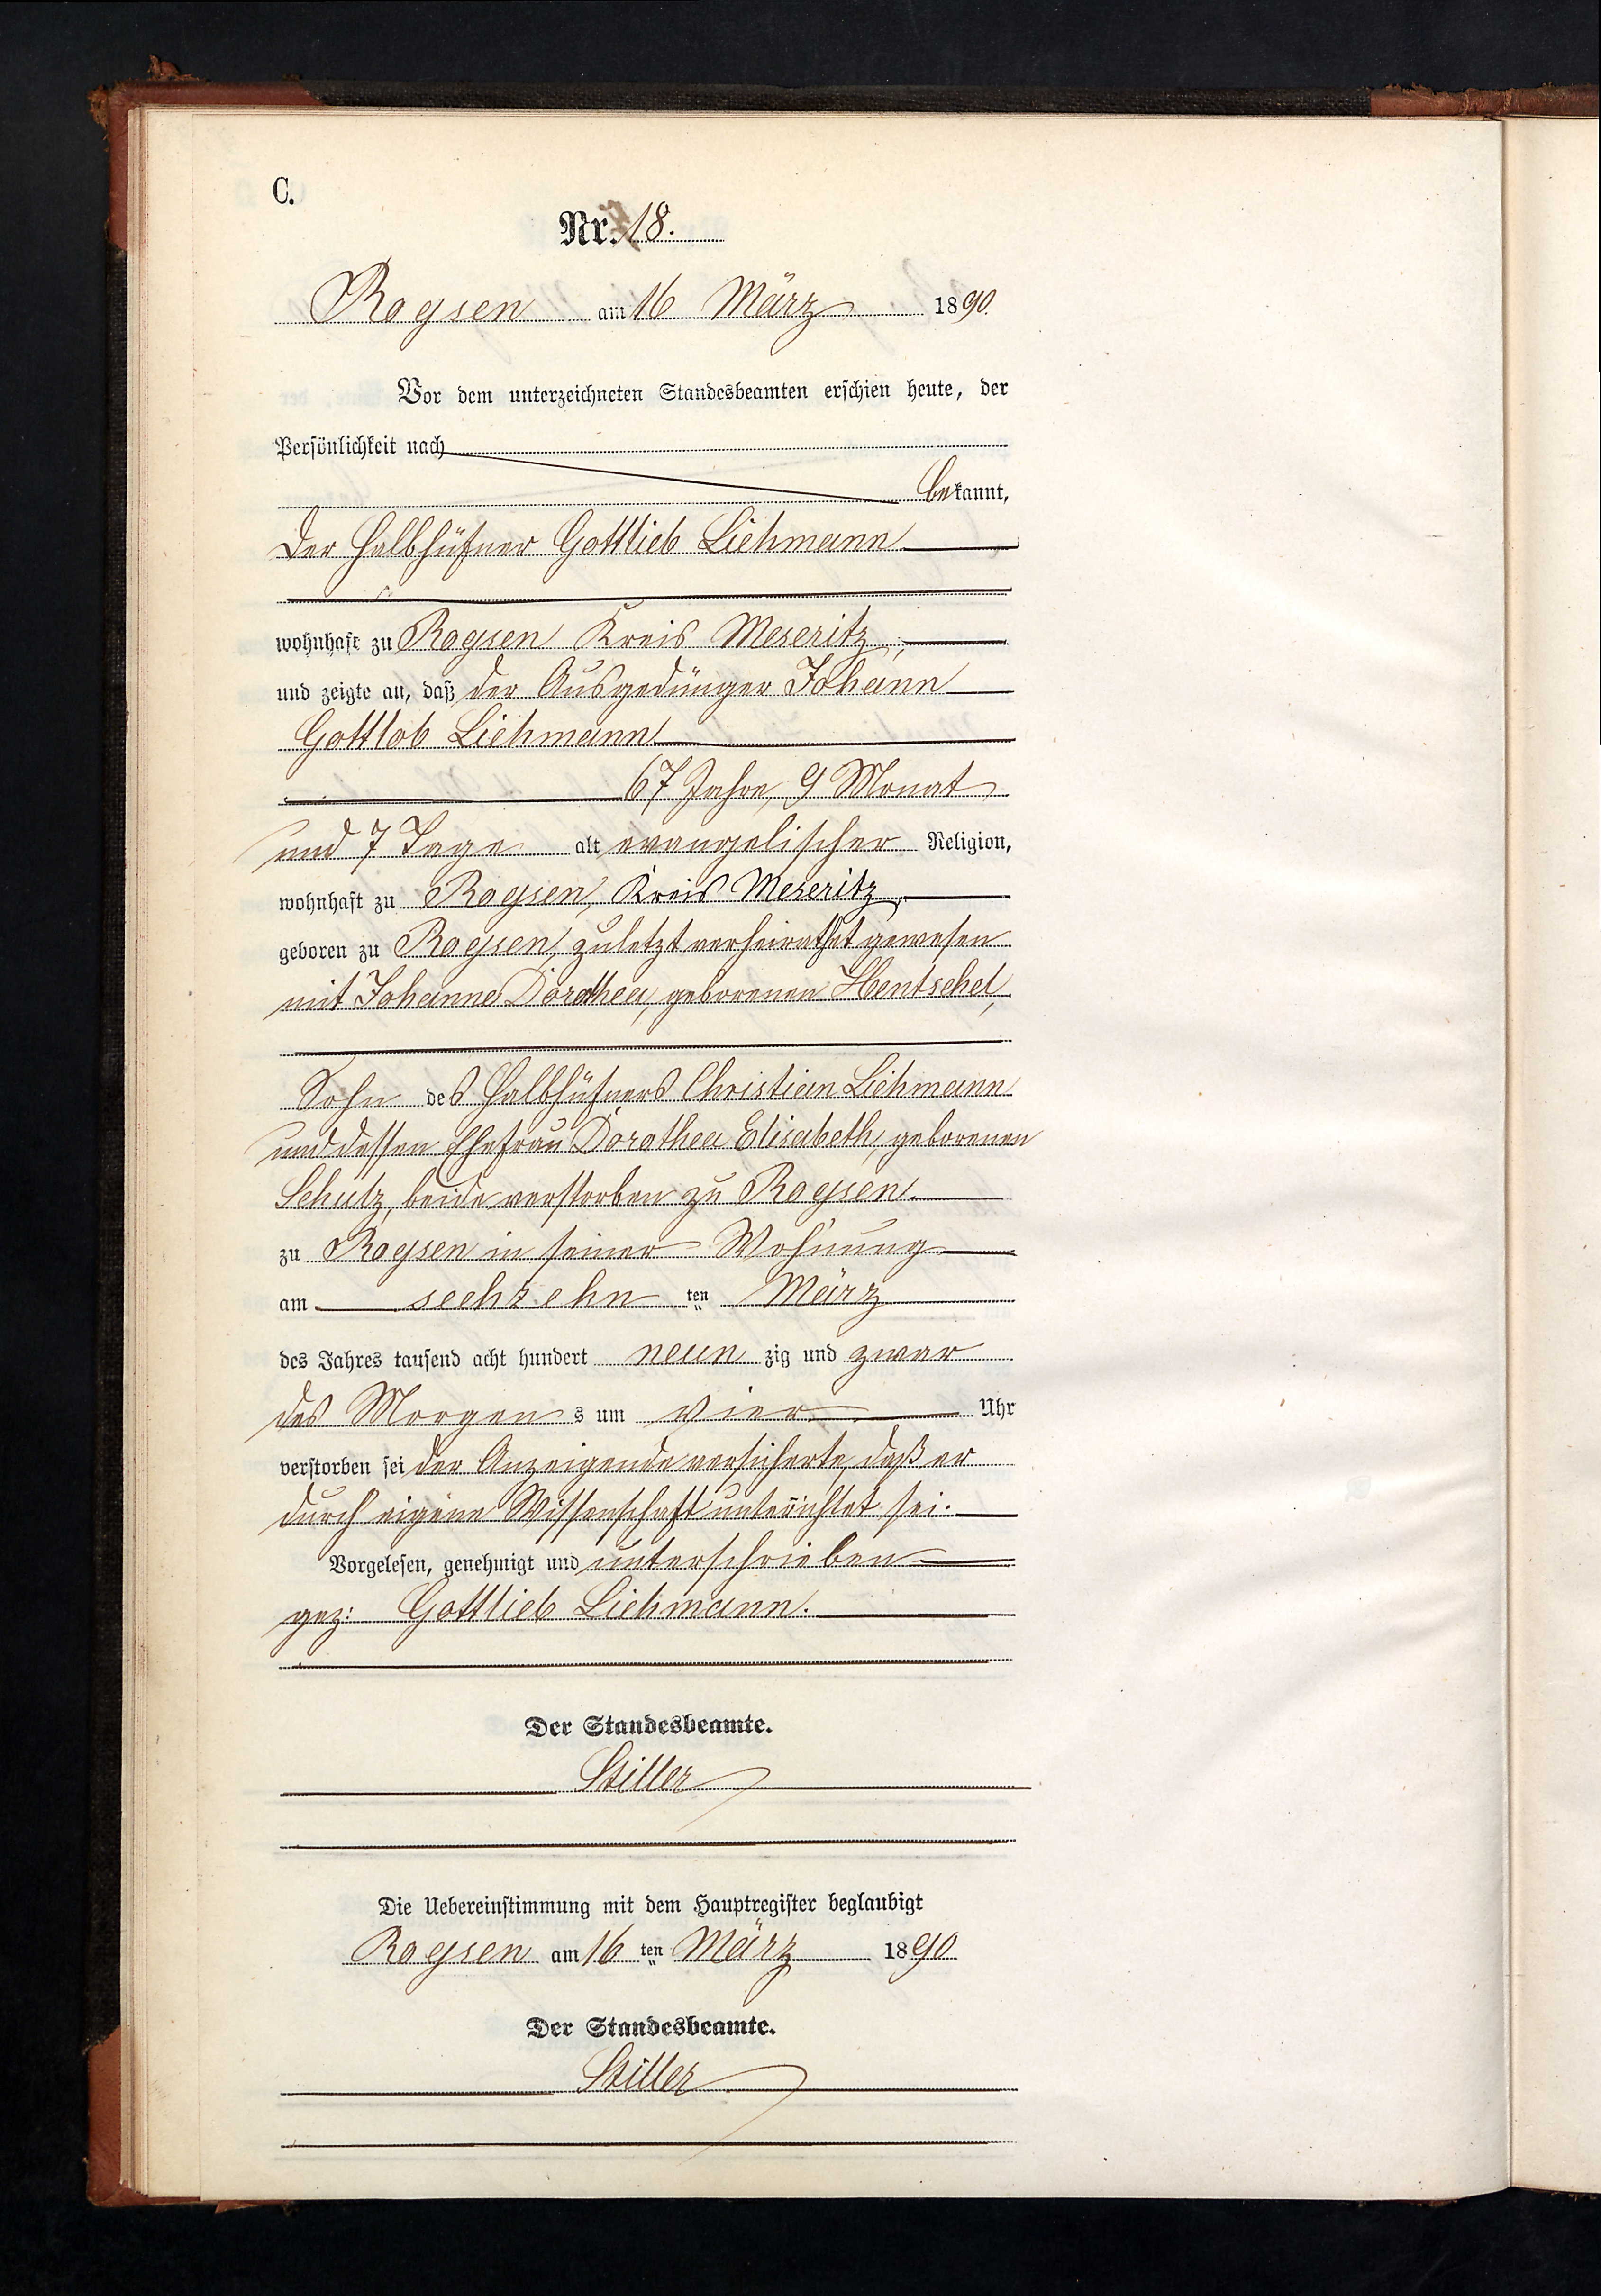 C.
Nr. 18.
Rogsen am 16 März 1890.
Vor dem unterzeichneten Standesbeamten erschien heute, der
Persönlichkeit nach
bekannt,
der Halbhüfner Gottlieb Liehmann
wohnhaft zu Rogsen Kreis Meseritz,
und zeigte an, daß der Ausgedünger Johann
Gottlob Liehmann
67 Jahre, 9 Monat
und 7 Tage alt evangelischer Religion,
wohnhaft zu Rogsen, Kreis Meseritz,
geboren zu Rogsen, zuletzt verheirathet gewesen
mit Johanne Dorothea, geborenen Hentschel,
Sohn des Halbhüfners Christian Liehmann
und dessen Ehefrau Dorothea Elisabeth, geborenen
Schulz, beide verstorben zu Rogsen.
zu Rogsen in seiner Wohnung
am sechzehn ten März
des Jahres tausend acht hundert neun zig und zwar
des Morgens um vier Uhr
verstorben sei der Anzeigende versicherte, daß er
durch eigene Wissenschaft unterichtet sei.
Vorgelesen, genehmigt und unterschrieben
gez: Gottlieb Liehmann.
Der Standesbeamte.
Stiller
Die Uebereinstimmung mit dem Hauptregister beglaubigt
Rogsen am 16 ten März 1890
Der Standesbeamte.
Stiller